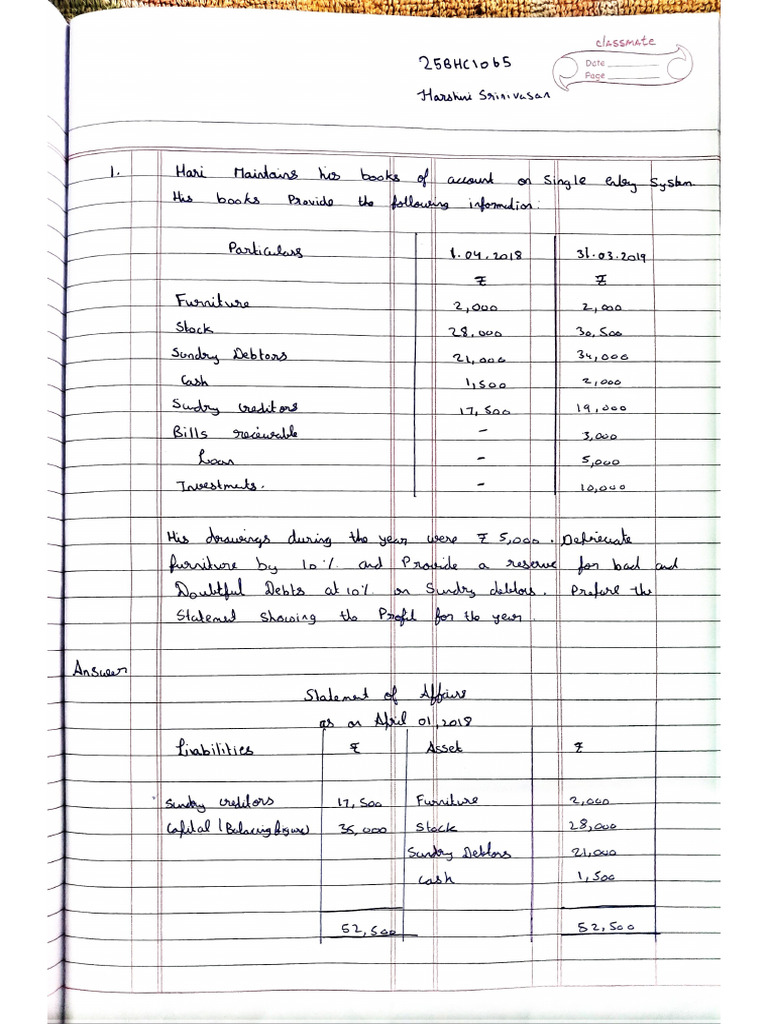 classmate
Date
Page
25BHC1065
Harshni Srinivasan
1. Hari Maintains his books of account on Single entry System.
His books Provide the following information:
Particulars 1.04.2018 31.03.2019
₹ ₹
Furniture 2,000 2,000
Stock 28,000 30,500
Sundry Debtors 21,000 34,000
Cash 1,500 2,000
Sundry creditors 17,500 19,000
Bills receivable - 3,000
Loan - 5,000
Investments. - 10,000
His drawings during the year were ₹ 5,000. Depreciate
furniture by 10% and Provide a reserve for bad and
Doubtful Debts at 10% on Sundry debtors. Prepare the
Statement showing the Profit for the year.
Answer
Statement of Affairs
as on April 01, 2018
Liabilities ₹ Asset ₹
Sundry creditors 17,500 Furniture 2,000
Capital (Balancing figure) 35,000 Stock 28,000
Sundry Debtors 21,000
Cash 1,500
52,500 52,500